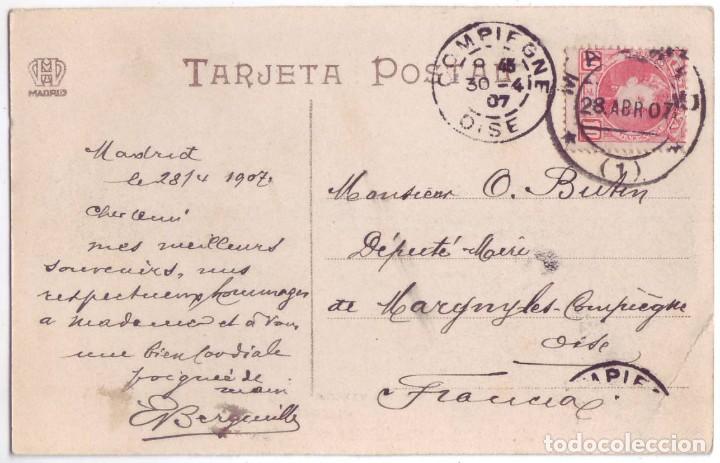 HMM
MADRID
TARJETA POSTAL
COMPIEGNE
8 45
30 -4
07
OISE
28 ABR 07
(1)
Madrid
le 28/4 1907.
Cher ami
mes meilleurs
souvenirs, mes
respectueux hommages
a madame et à vous
une bien Cordiale
poignée de
main
Monsieur O. Butin
Député-Maire
de Margny les-Compiègne
Oise
MPIEG
Francia
todocoleccion
todocoleccion.net